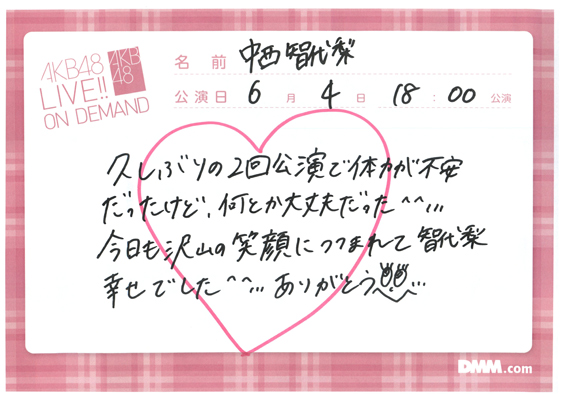 AKB48
LIVE!!
ON DEMAND
AKB
48
名前 中西智代梨
公演日 6月4日 18:00公演
久しぶりの2回公演で体力が不安
だったけど、何とか大丈夫だった^^…
今日も沢山の笑顔につつまれて智代梨
幸せでした^^…ありがとう…
DMM.com